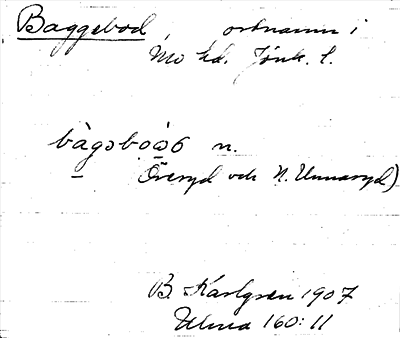 Baggebod ortnamn i
Mo hd. Jönk. l.
bàgəboə̀6 n.
Öreryd och N. Unnaryd)
B. Karlgren 1907
Ulma 160:11